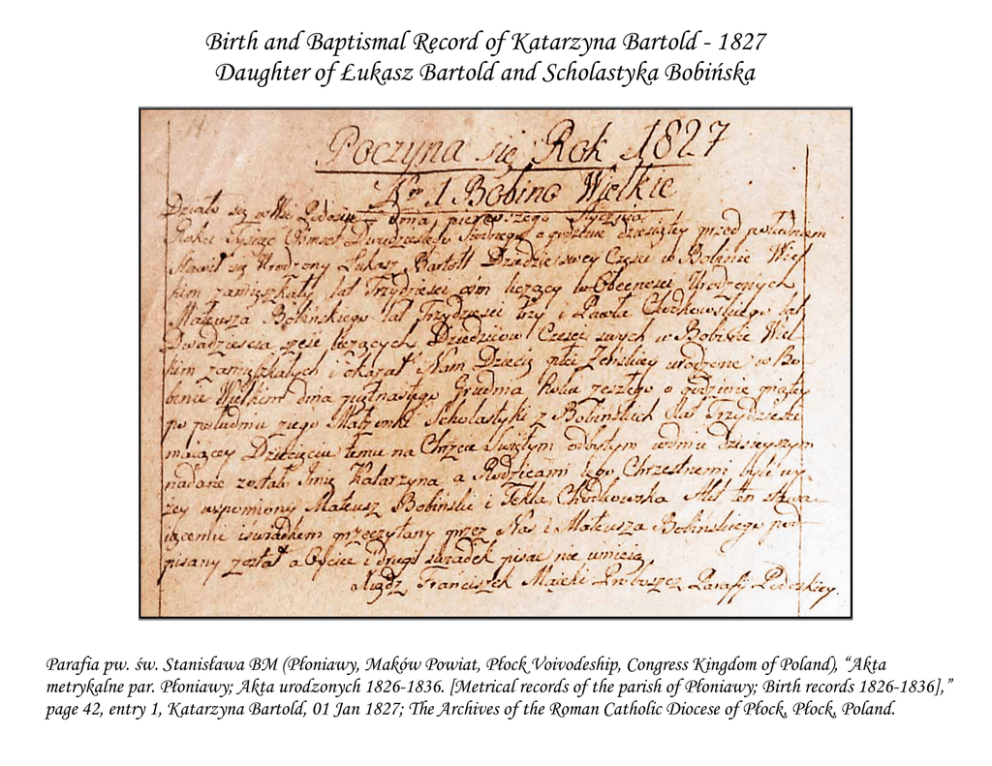 Birth and Baptismal Record of Katarzyna Bartold - 1827
Daughter of Łukasz Bartold and Scholastyka Bobińska
Poczyna się Rok 1827
Nro 1 Bobino Wielkie
Działo się we Wsi dnia pierwszego Stycznia
Roku Tysiąc Ośmset Dwudziestego Siodmego o godzinie dziesiątey przed południem
Stawił się Urodzony Łukasz Bartołt Dziedzic Częsci w Bobinie Wiel
kim zamięszkały lat Trzydziesci ośm liczący w Obecnosci Urodzonych
Mateusza Bobińskiego lat Trzydziesci trzy i Pawła lat
Dwadziescia szesc liczących Dziedziców Częsci swych w Bobinie Wiel
kim zamięszkałych i okazał Nam Dziecię płci Zeńskiey urodzone w Bo
binie Wielkim dnia piętnastego Grudnia Roku zeszłego o godzinie piątey
po południu z iego Małżonki Scholastyki z Bobińskich lat Trzydziesci
maiącey Dziecięciu temu na Chrzcie Swiętym odbytym w dniu dzisieyszym
nadane zostało Imię Katarzyna a Rodzicami iego Chrzestnemi byli wy
żey wspomniony Mateusz Bobiński i Tekla Akt ten stawa
iącemu i swiadkom przeczytany przez Nas i Mateusza Bobińskiego pod
pisany został a Oyciec i drugi swiadek pisac nie umieią
Franciszek Proboszcz Parafii
Parafia pw. św. Stanisława BM (Płoniawy, Maków Powiat, Płock Voivodeship, Congress Kingdom of Poland), “Akta
metrykalne par. Płoniawy; Akta urodzonych 1826-1836. [Metrical records of the parish of Płoniawy; Birth records 1826-1836],”
page 42, entry 1, Katarzyna Bartold, 01 Jan 1827; The Archives of the Roman Catholic Diocese of Płock, Płock, Poland.